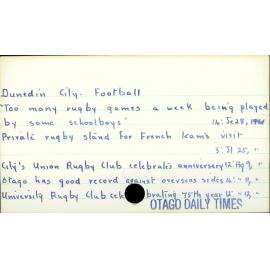 Dunedin City - Football
"Too many rugby games a week being played
by some schoolboys" 14: Je 28, 1961
Private rugby stand for French team's visit
3: Jl 25, "
City's Union Rugby Club celebrates anniversary 12: Ag 9, "
Otago has good record against overseas sides 14: " 11, "
University Rugby Club celebrating 75th year 12: " 17, "
OTAGO DAILY TIMES